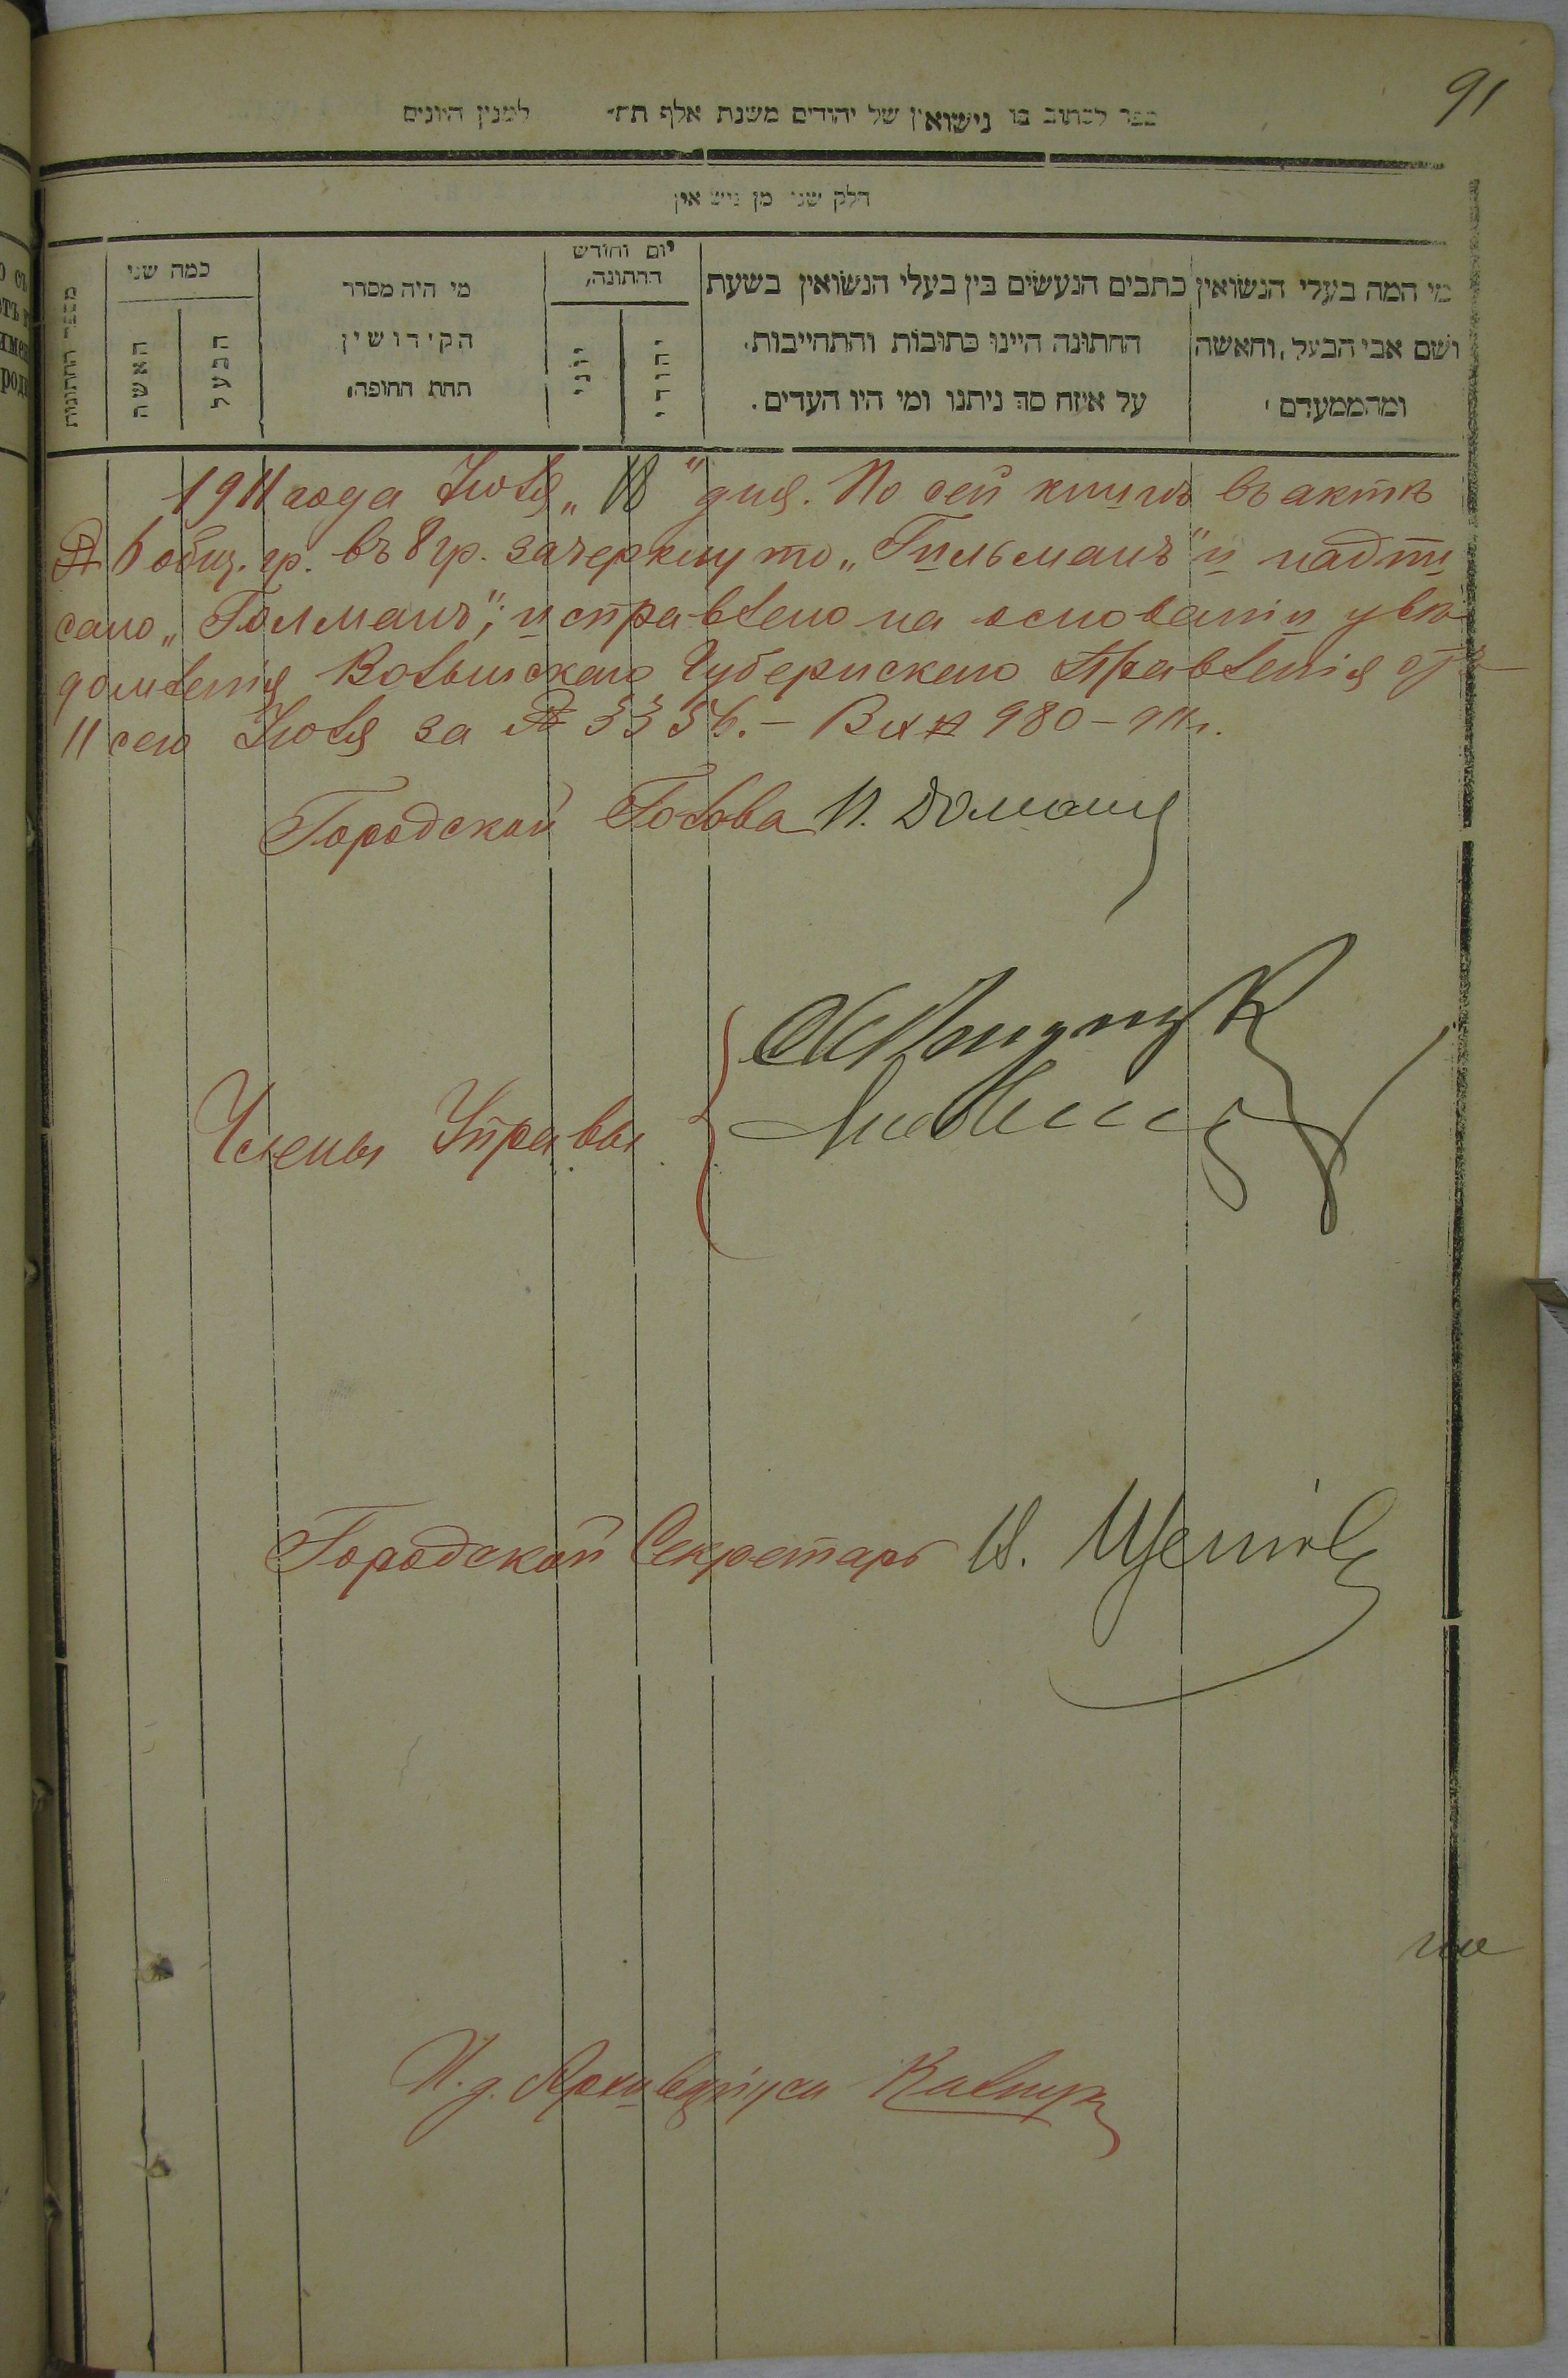 91
ספר לכתוב בו נישואין של יהודים משנת אלף תת־ למנין היונים
חלק שני מן נישואין
מי המה בעלי הנשואין
ושם אבי הבעל, והאשה
ומהממעדם
כתבים הנעשים בין בעלי הנשואין בשעת
החתונה היינו כתובות והתחייבות.
על איזה סך ניתנו ומי היו העדים.
יום וחודש
החתונה,
יהודי
יוני
מי היה מסדר
הקידושין
תחת החופה,
כמה שני
הבעל
האשה
מספר החתונות
1911 года Июля „18" дня. По сей книгѣ въ актѣ
№ 6 общ. гр. въ 8 гр. зачеркнуто „Гильманъ" и надпи
сано „Голманъ"; исправлено на основаніи увѣ-
домленія Волынскаго Губернскаго Правленія отъ
11 сего Июля за № 3356. – Вх № 980 – 911 г.
Городской Голова
Члены Управы
Городской Секретарь
И. д. Архиваріуса